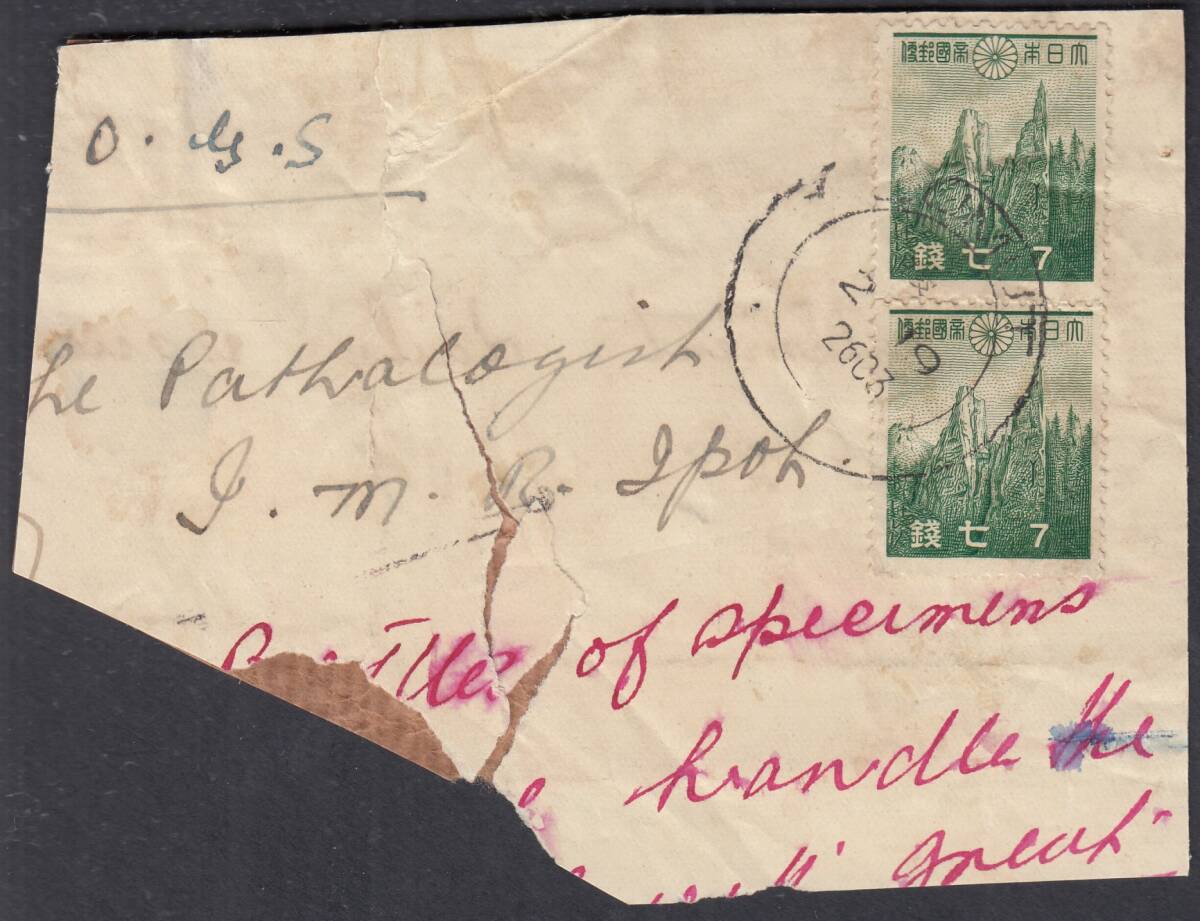 O.H.S
he Pathalogist
I.M.R. Ipoh.
Bottles of specimens
handle the
great
大日本帝國郵便
7 七錢
大日本帝國郵便
7 七錢
2
10
2603